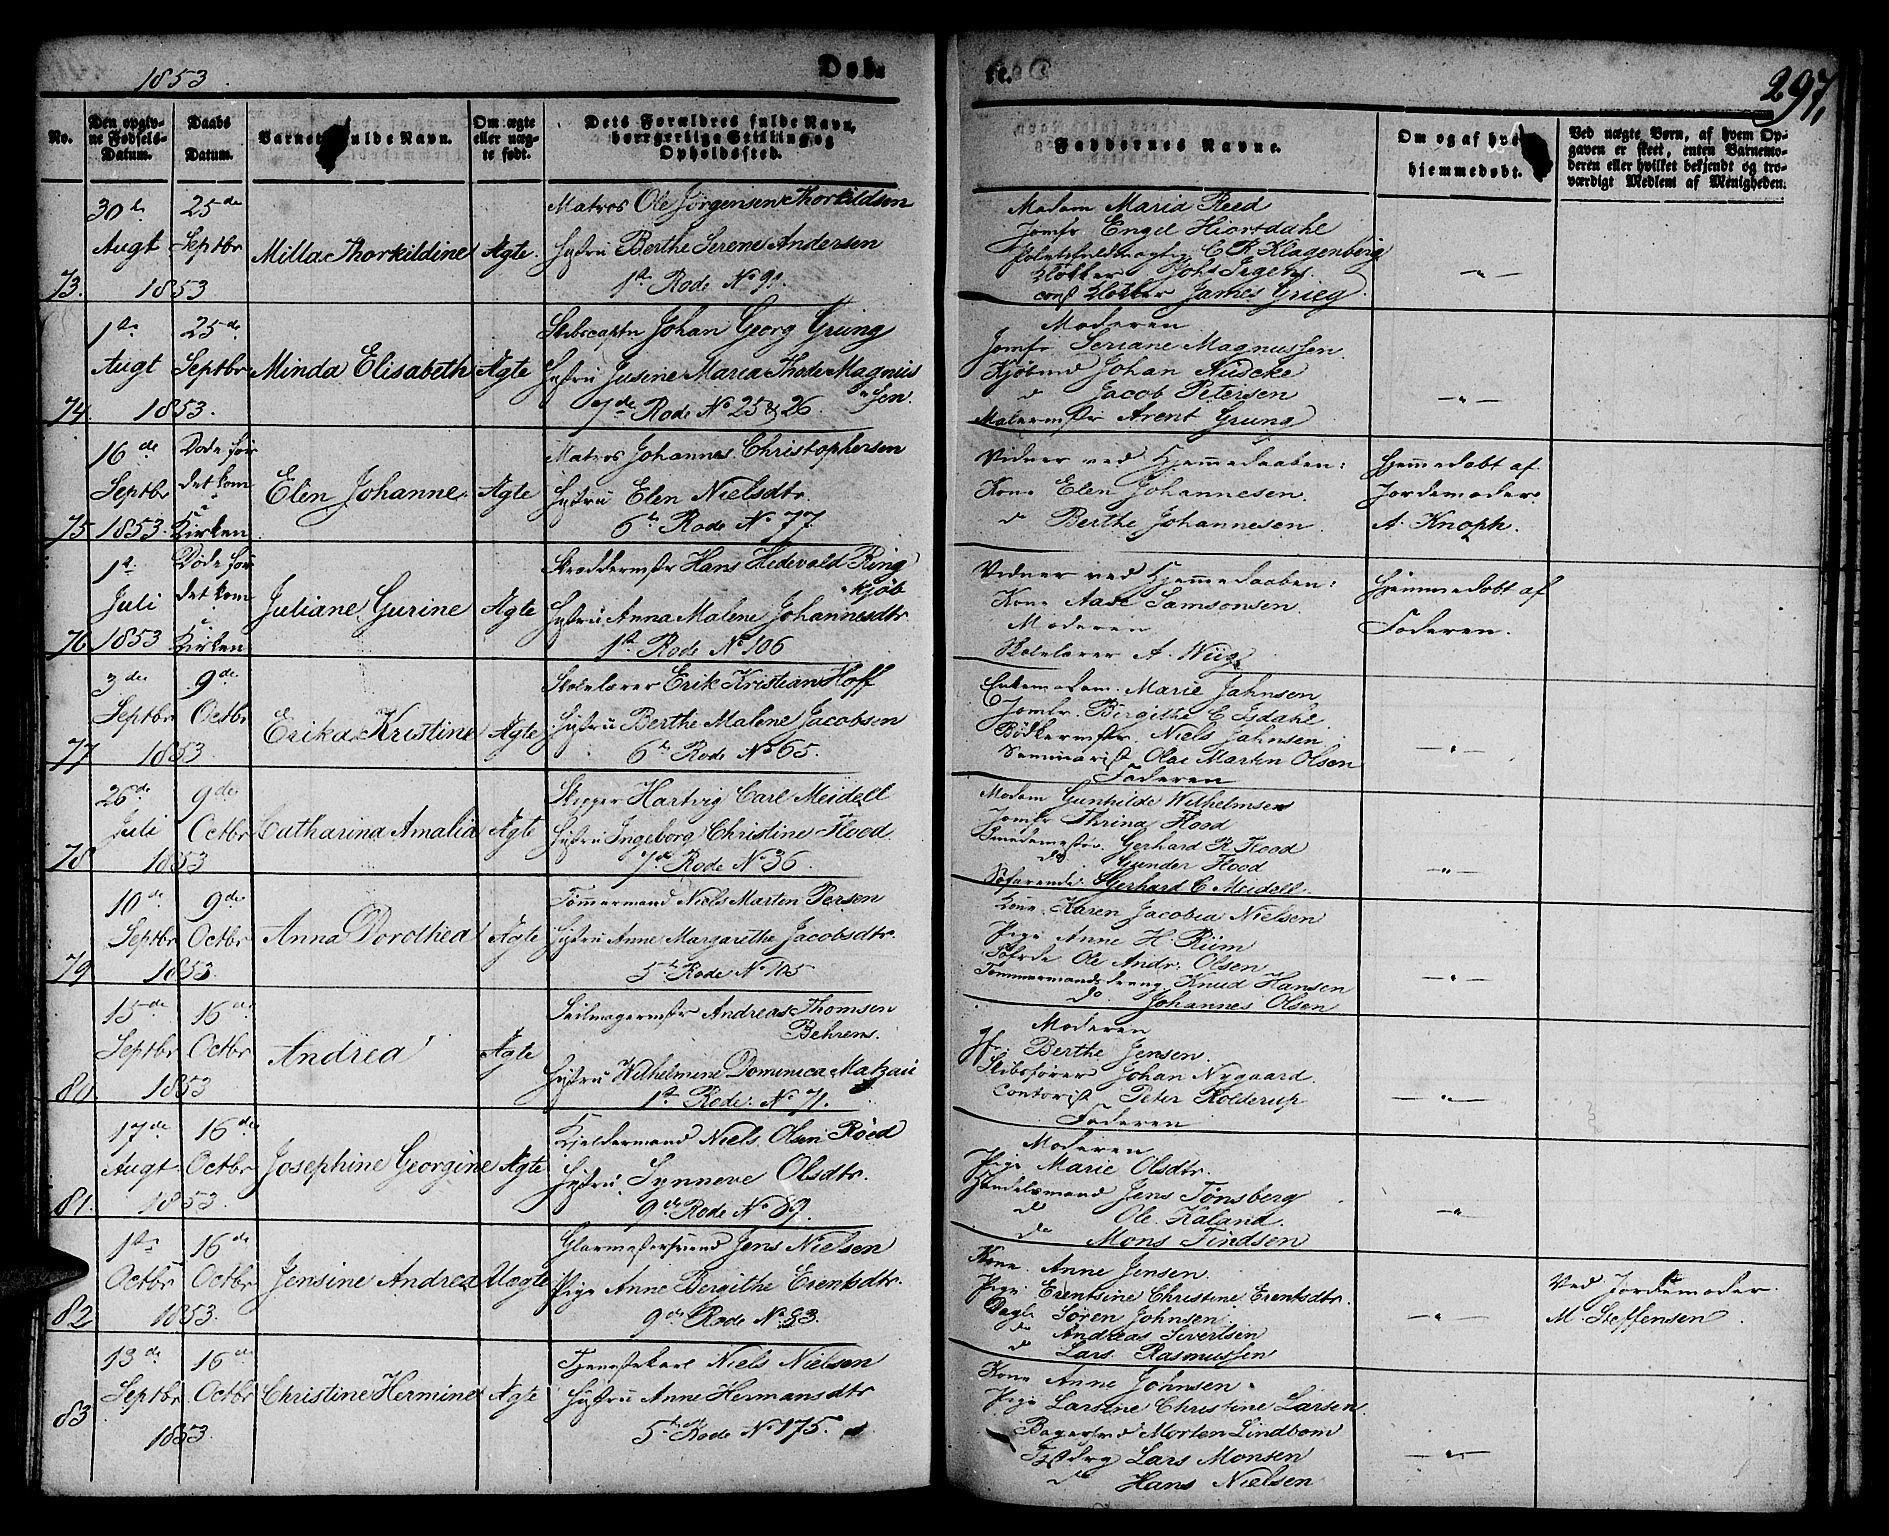 1853.
Døb-
te.
297,
No.
Den opgiv-
ne Fødsels-
Datum.
Daabs
Datum.
Varnets fulde Navn.
Om ægte
eller uæg-
te født.
Dets Forældres fulde Navn,
borgerlige Stilling og
Opholdssted.
Faddernes Navne.
Om og af hvem
hjemmedøbt.
Ved uægte Børn, af hvem Op-
gaven er skeet, enten Barnemo-
deren eller hvilket bekjendt og tro-
værdigt Medlem af Menigheden.
73.
30te
Augt
1853
25de
Septbr
Milla Thorkildine
Ægte.
Matros Ole Jörgensen Thorkildsen
Hustru Berthe Serene Andersen
1ste Rode No 91.
Madam Maria Reed
Jomfr Engel Hiortdahl
C. R. Klagenberg
Klokker Johs
const Klokker James Grieg.
"
74.
1ste
Augt
1853.
25de
Septbr
Minda Elisabeth
Ægte
Skibscaptn Johan Georg Grung
Hustru Jusine Maria Thode Magnus
sen.
7de Rode No 25 & 26.
Moderen
Jomfr Seriane Magnussen
Kjøbmd Johan Auscke
do Jacob Petersen
Malermstr Arent Grung
"
75
16de
Septbr
1853.
Døde før
det kom
i
Kirken
Elen Johanne
Ægte
Matros Johannes Christophersen
Hustru Elen Nielsdtr.
6te Rode No 77
Vidner ved Hjemmedaaben:
Kone Elen Johannesen.
do Berthe Johannesen.
Hjemmedøbt af
Jordemoder
A. Knoph.
76
1ste
Juli
1853
Døde før
det kom
i
Kirken
Juliane Gurine
Ægte
Skræddermstr Hans Hedevold Ring
kjøb
Hustru Anna Malene Johannesdtr.
1ste Rode No 106
Vidner ved Hjemmedaaben:
Kone Aase Samsonsen
Moderen
Skolelærer A. Wiig
Hjemmedøbt af
Faderen.
77
3die
Septbr
1853
9de
Octbr
Erika Kristine
Ægte
Skolelærer Erik Kristian Hoff
Hustru Berthe Malene Jacobsen
6te Rode No 65.
Enkemadam. Marie Jahnsen
Jomfr. Birgithe C Isdahl.
Bødkermstr. Niels Jahnsen
Seminarist Olae Martin Olsen
Faderen
"
78
26de
Juli
1853
9de
Octbr
Catharina Amalia
Ægte
Skipper Hartvig Carl Meidell
Hustru Ingeborg Christine Flood
7de Rode No 36.
Madam Gunhilde Wilhelmsen
Jomfr Thrina Flood
Smedemester Gerhard R. Flood
do Gunder Flood
Søfarende Gerhard C. Meidell.
"
79
10de
Septbr
1853.
9de
Octbr
Anna Dorothea
Ægte
Tömmermand Niels Marten Persen
Hustru Anne Margarethe Jacobsdtr.
5te Rode No 105
Kone Karen Jacobia Nielsen
Pige Anne H. Riim
Søfrde Ole Andr. Olsen
Tømmermandsdreng Knud Hansen
do. Johannes Olsen
"
80
15de
Septbr
1853
16de
Octbr
Andrea
Ægte
Seilmagermstr Andreas Thomsen
Behrens.
Hustru Wilhelmine Dominica Matzau
1ste Rode. No 71.
Moderen
Jfr. Berthe Jensen.
Skibsfører Johan Nygaard.
Contorist Peter Rolderup
Faderen
"
81.
17de
Augt.
1853.
16de
Octbr
Josephine Georgine
Ægte
Kjeldermand Niels Olsen Røed
Hustru Synneve Olsdtr.
9de Rode No 89.
Moderen
Pige Marie Olsdtr.
Handelsmand Jens Tønsberg
do Ole Kaland.
do Mons Findsen
"
82
1ste
Octbr
1853.
16de
Octbr
Jensine Andrea
Uægte
Glarmestersvend Jens Nielsen
Pige Anne Bergithe Erentsdtr.
9de Rode No 83.
Kone Anne Jensen.
Pige Erentsine Christine Erentsdtr.
Dagl Søren Johnsen.
do Andreas Sivertsen
do Lars Rasmussen
"
Ved Jordemoder
M. Steffensen
83
13de
Septbr
1853.
16de
Octbr
Christine Hermine
Ægte
Tjenestekarl Niels Nielsen
Hustru Anne Hermansdtr
5te Rode No 175.
Kone Anne Johnsen.
Pige Larsine Christine Larsen.
Bagersvd Morten Lindbom
Lars Monsen
do Hans Nielsen
"